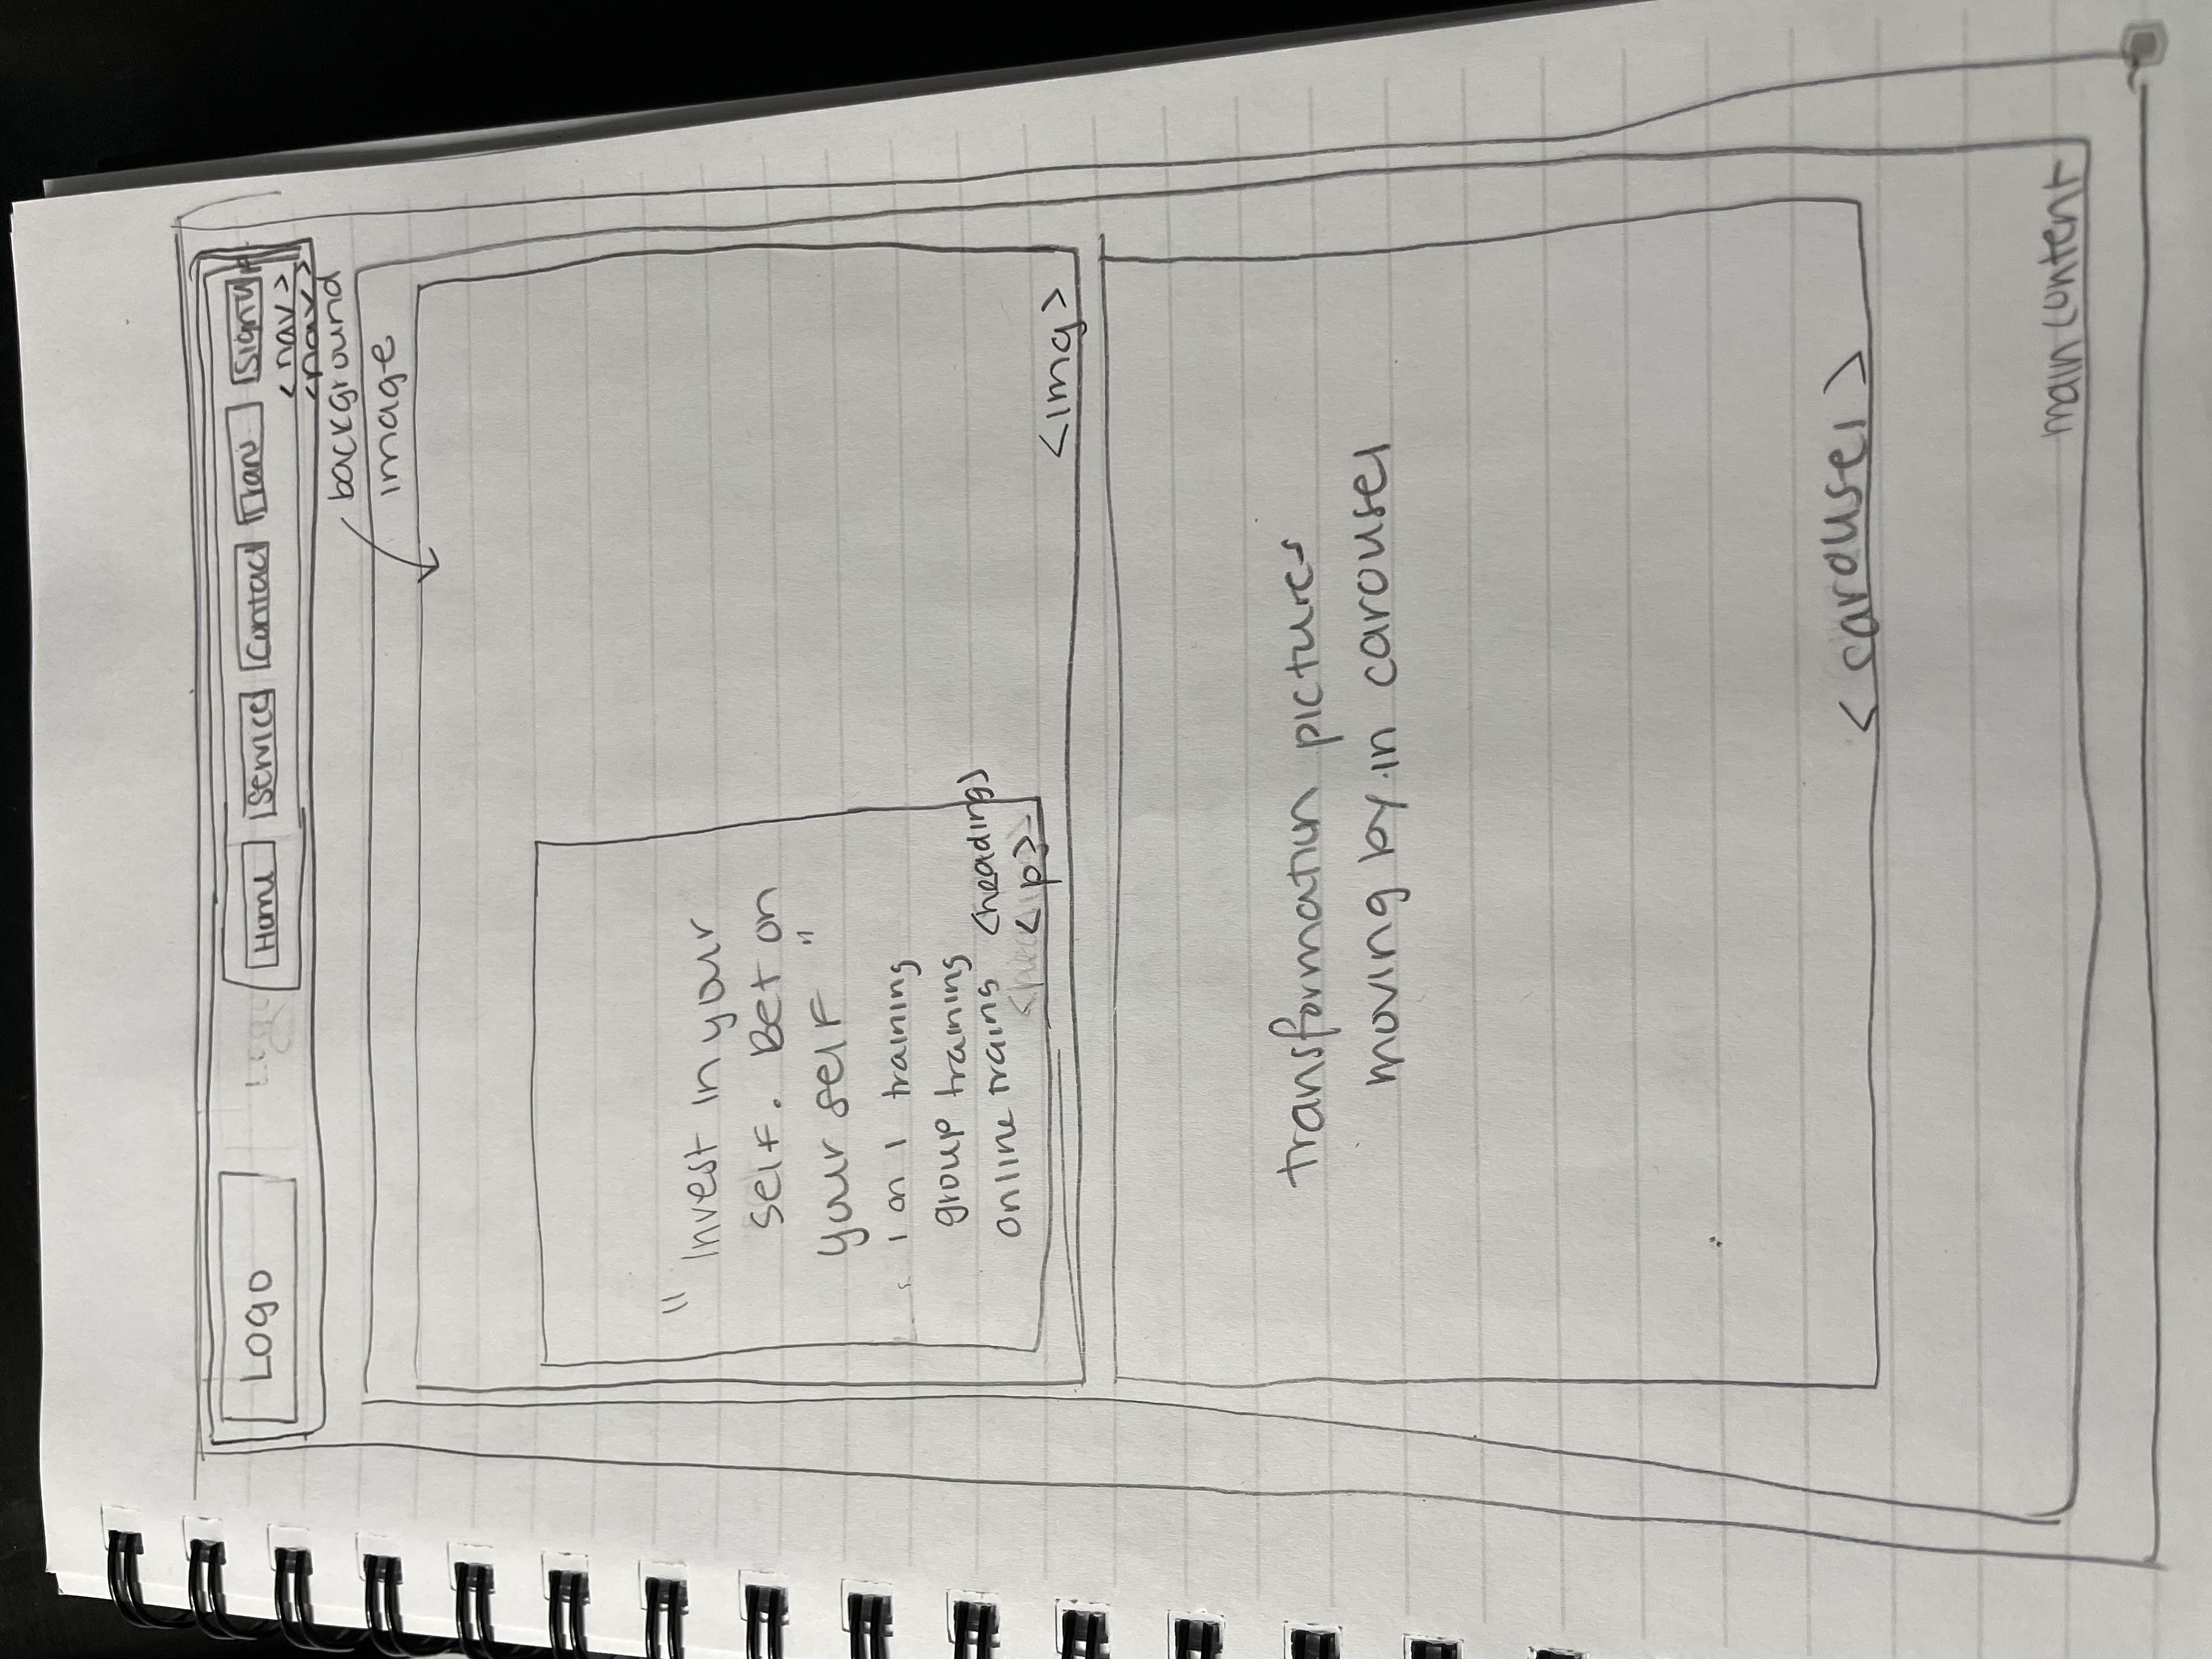 Logo
Home Services Contact Trans Sign up
<nav>
<nav>
background
image
" Invest in your
self. Bet on
your self "
1 on 1 training
group training
online trains <heading>
<p>
<img>
transformation pictures
moving by in carousel
<carousel>
main content